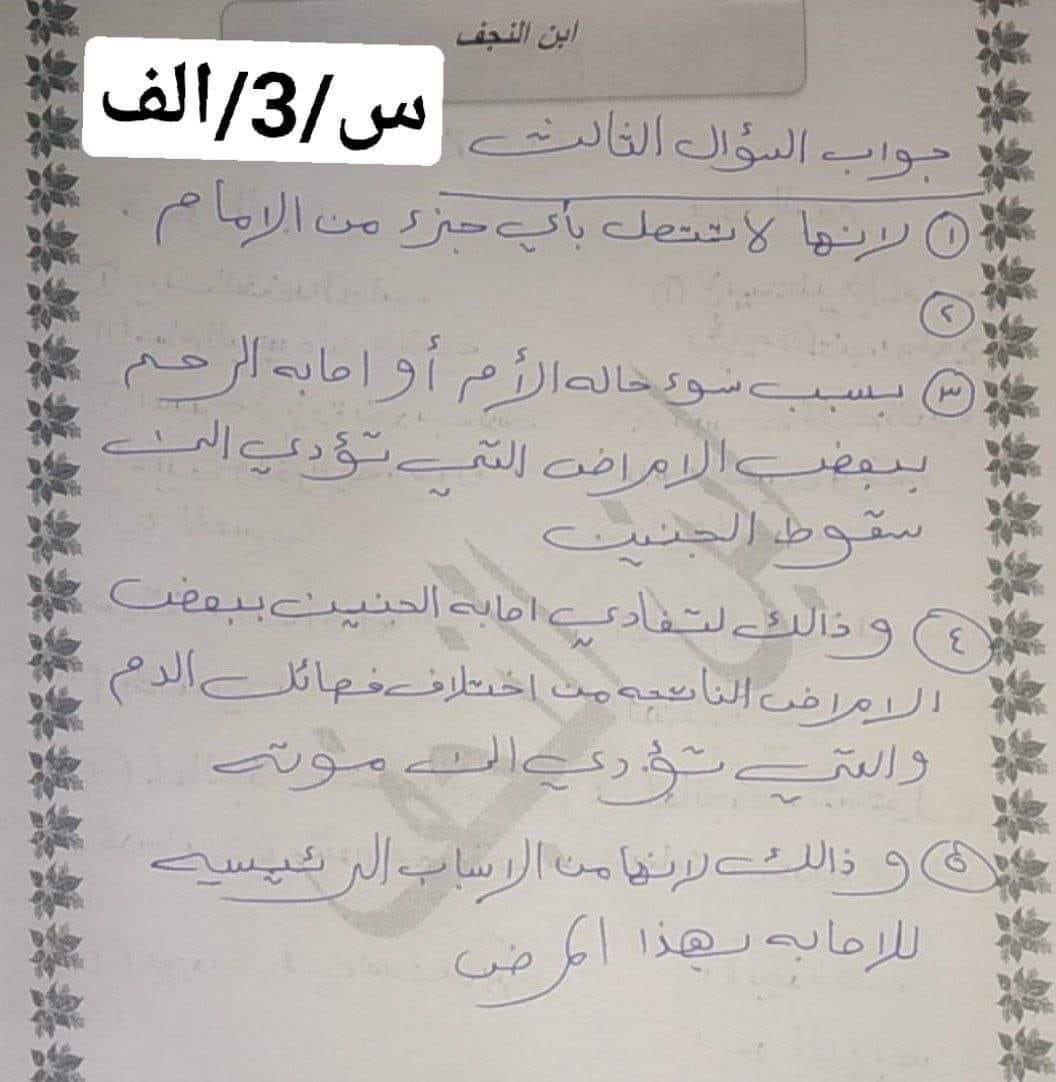 ابن النجف
س/3/الف
جواب السؤال الثالث
١ لانها لا تتصل بأي جزء من الامام .
٢
٣ بسبب سوء حاله الأم أو اصابه الرحم
ببعض الامراض التي تؤدي الى
سقوط الجنين
٤ و ذالك لتفادي اصابه الجنين ببعض
الامراض الناتجه من اختلاف فصائل الدم
والتي تؤدي الى موته
٥ و ذالك لانها من الاسباب الرئيسيه
للاصابه بهذا المرض
ابن النجف